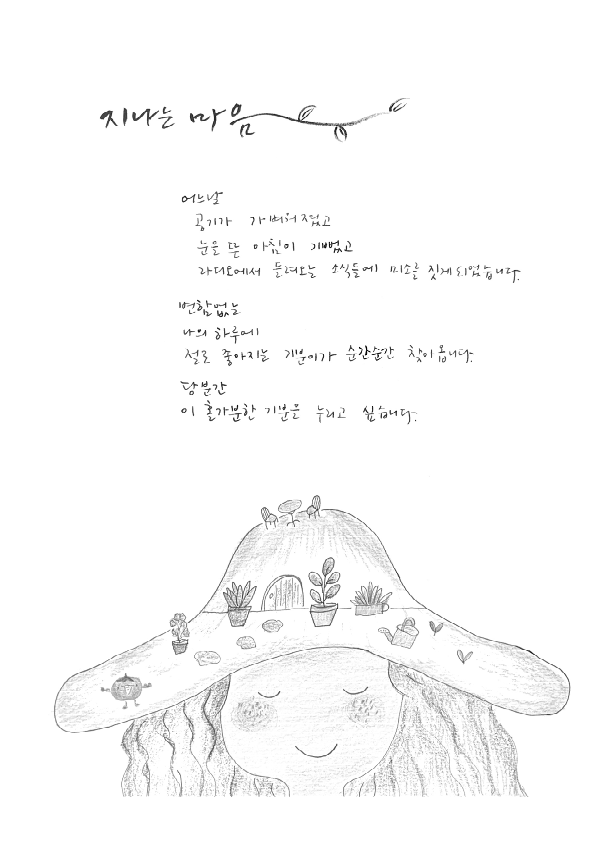 지나는 마음
어느날
공기가 가벼워졌고
눈을 뜬 아침이 기뻤고
라디오에서 들려오는 소식들에 미소를 짓게 되었습니다.
변함없는
나의 하루에
절로 좋아지는 기분이가 순간순간 찾아옵니다.
당분간
이 홀가분한 기분을 누리고 싶습니다.